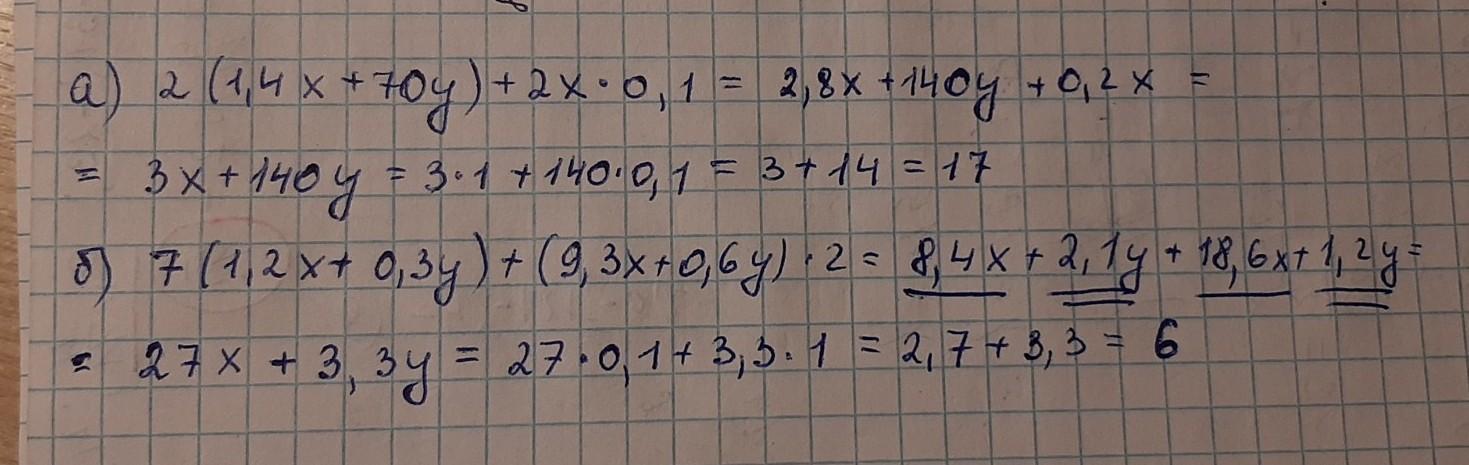 а) 2(1,4x+70y)+2x·0,1 = 2,8x+140y+0,2x =
= 3x+140y = 3·1+140·0,1 = 3+14 = 17
б) 7(1,2x+0,3y)+(9,3x+0,6y)·2 = 8,4x+2,1y+18,6x+1,2y=
= 27x + 3,3y = 27·0,1+3,3·1 = 2,7+3,3 = 6